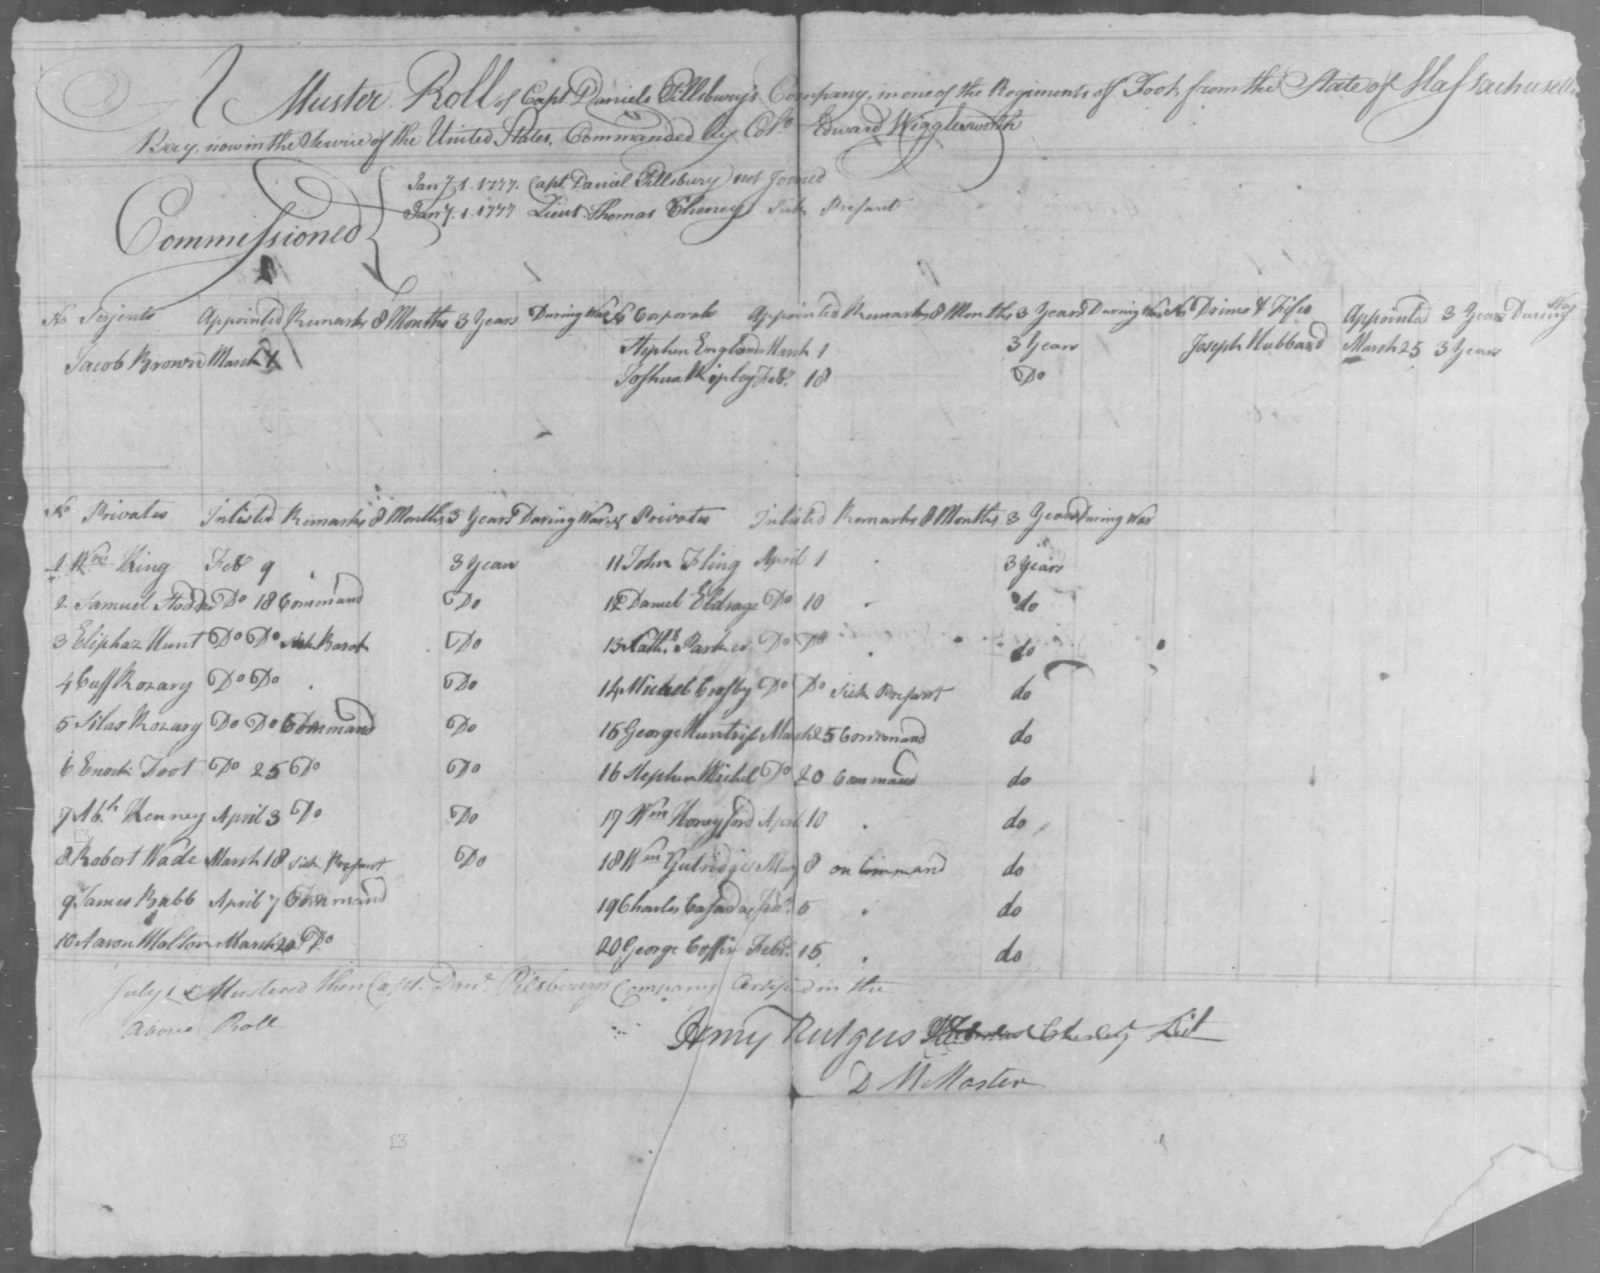 A Muster Roll of Capt Daniels Pillsbury's Company in one of the Regiments of Foot from the State of Massachusetts
Bay, now in the Service of the United States, Commanded by Colo Edward Wigglesworth
Commissioned
Jany 1. 1777. Capt Danial Pillsbury not Joined
Jany. 1. 1777 Lieut Thomas Cheney Sick Present
No Serjents Appointed Remarks 8 Months 3 Years During War No Corporals Appointed Remarks 8 Months 3 Years During War No Drums & Fifes Appointed 3 Years During War
Jacob Brown March 1 Stephen England March 1 3 Years Joseph Hubbard March 25 3 Years
Joshua Ripley Feb. 18 Do
No Privates Inlisted Remarks 8 Months 3 Years During War No Privates Inlisted Remarks 8 Months 3 Years During War
1 Wm King Feb 9 3 Years 11 John Fling April 1 3 Years
2 Samuel Do 18 Command Do 12 Daniel Eldrage Do 10 do
3 Eliphaz Hunt Do Do Sick Do 13 Parker Do Do do
4 Cuff Rozary Do Do Do 14 Michel Crosby Do Do Sick Present do
5 Silas Rozary Do Do Command Do 15 George March 25 Command do
6 Enoch Foot Do 25 Do Do 16 Stephen Michel Do 20 Command do
7 Ab.h Kenney April 3 Do Do 17 Wm Honeyford April 10 do
8 Robert Wade March 18 Sick Present Do 18 Wm Gutridge May 8 on Command do
9 James Babb April 7 Command 19 Charles 6 do
10 Aaron Malton March 20 Do 20 George Coffin Feb. 15 do
July 1 Mustered then Capt. Danl. Pilsburys Company in the
above Roll
Henry Rutgers Lit
D M Master